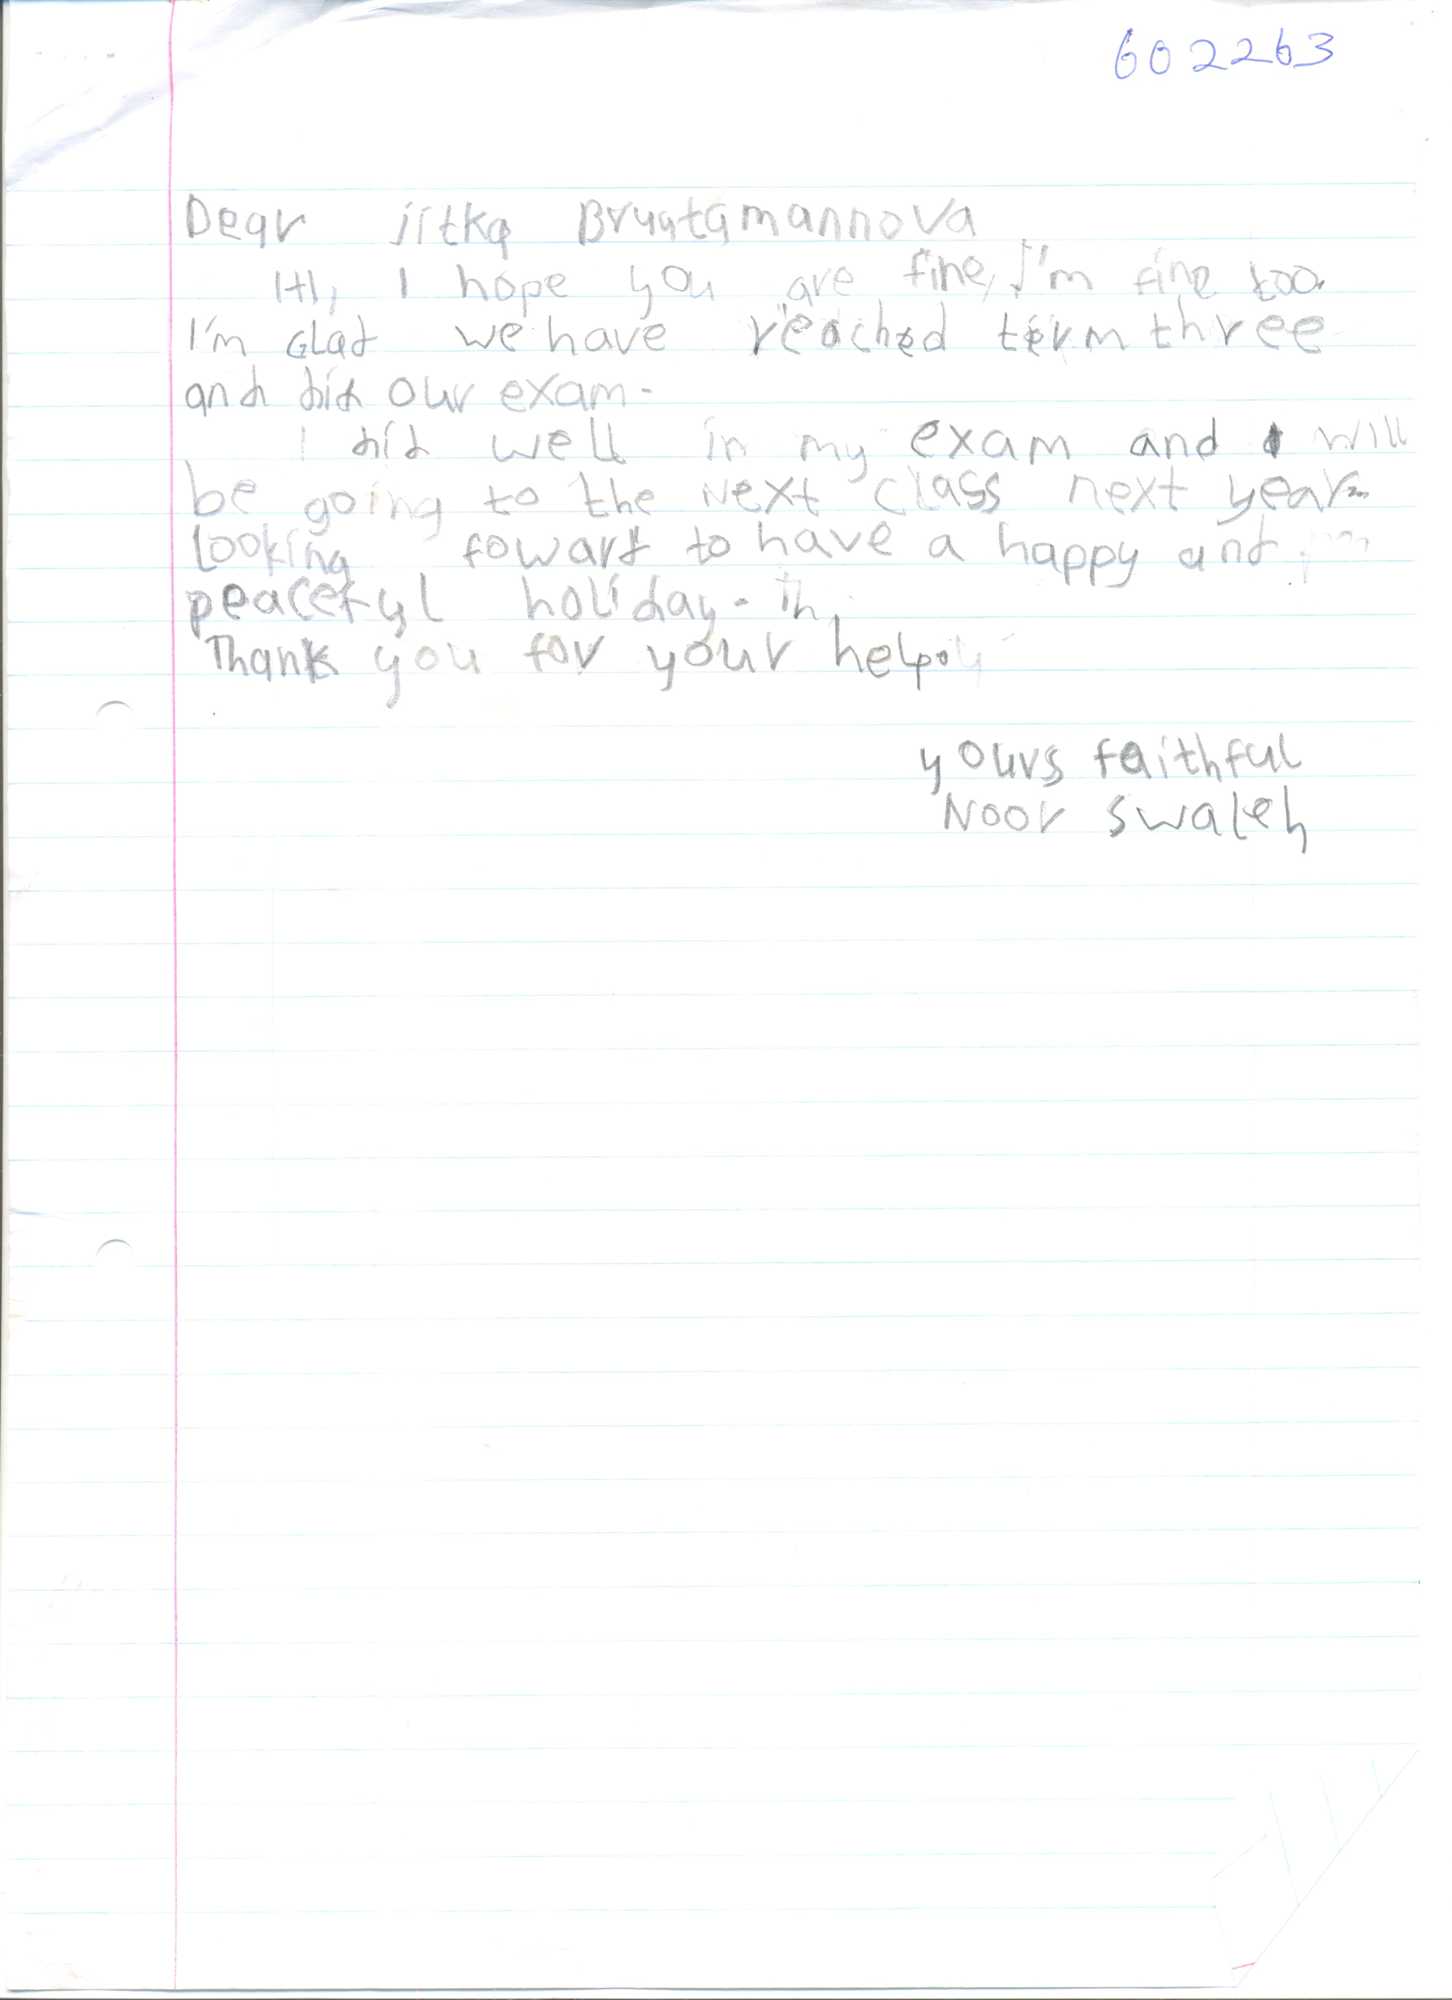 602263
Dear jitka Bruatamannova
Hi, I hope you are fine, I'm fine too.
I'm Glad we have reached term three
and did our exam.
I did well in my exam and I will
be going to the Next class next year.
looking foward to have a happy and
peaceful holiday. Th
Thank you for your help.
yours faithful
Noor swaleh